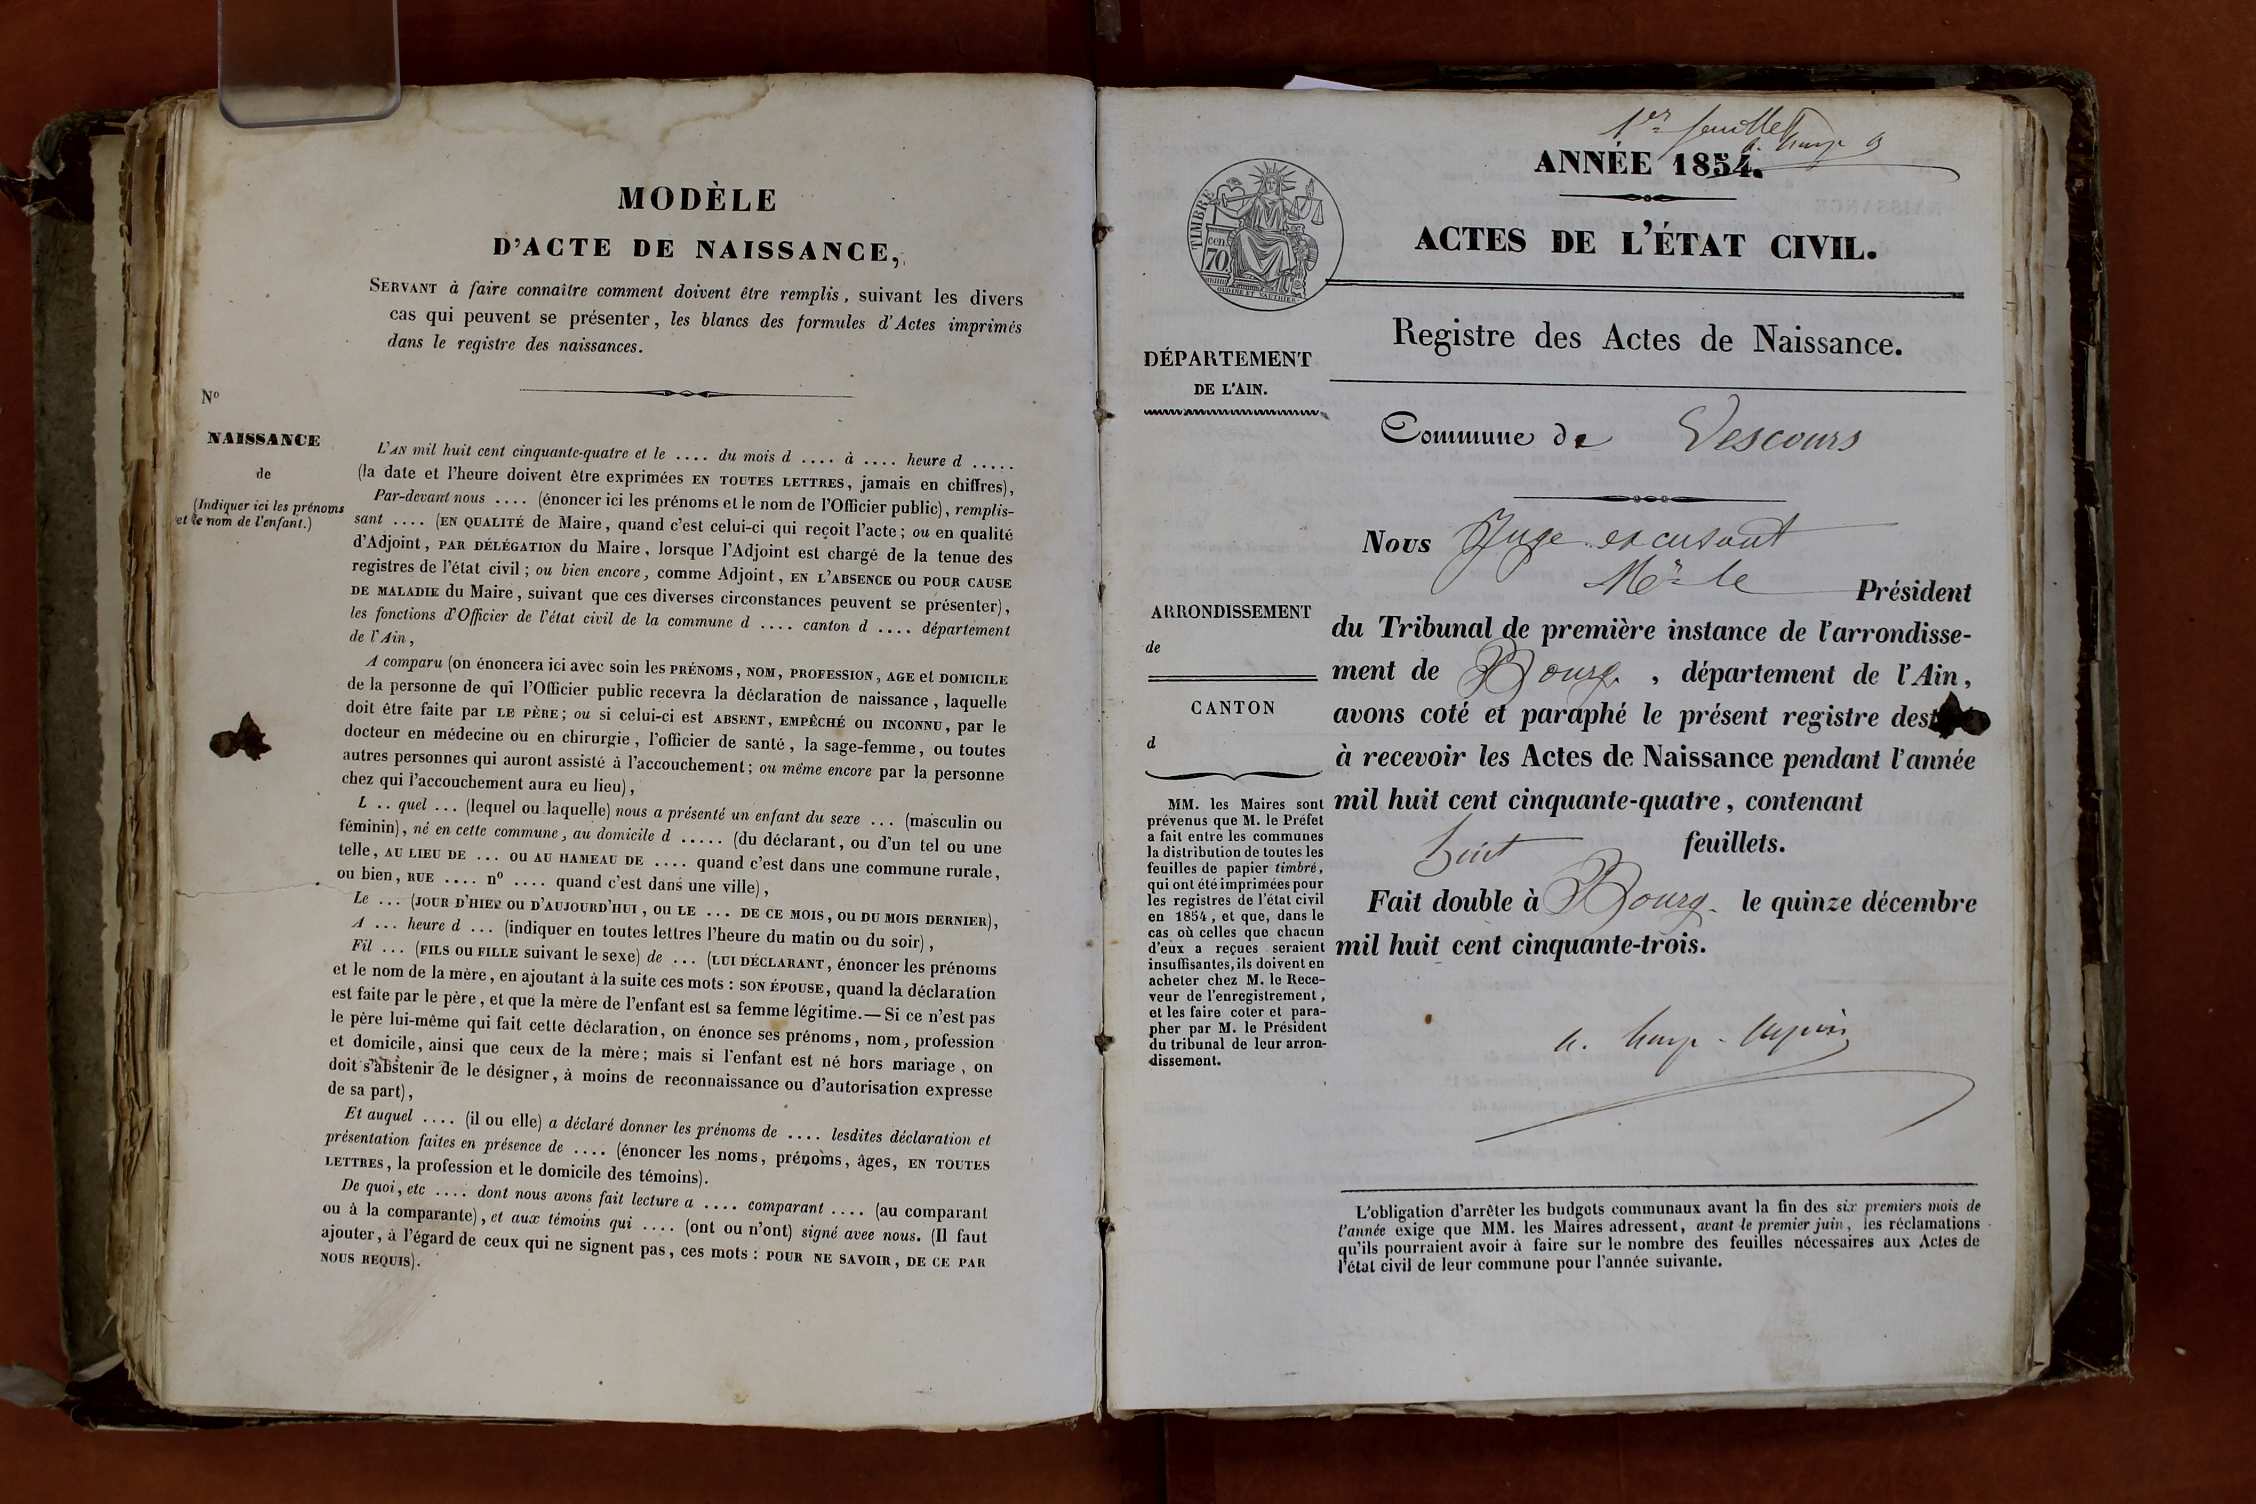 MODÈLE
D'ACTE DE NAISSANCE,
SERVANT à faire connaître comment doivent être remplis, suivant les divers
cas qui peuvent se présenter, les blancs des formules d'Actes imprimés
dans le registre des naissances.
No
NAISSANCE
de
(Indiquer ici les prénoms
et le nom de l'enfant.)
L'AN mil huit cent cinquante-quatre et le .... du mois d .... à .... heure d .....
(la date et l'heure doivent être exprimées EN TOUTES LETTRES, jamais en chiffres),
Par-devant nous .... (énoncer ici les prénoms et le nom de l'Officier public), remplis-
sant .... (EN QUALITÉ de Maire, quand c'est celui-ci qui reçoit l'acte; ou en qualité
d'Adjoint, PAR DÉLÉGATION du Maire, lorsque l'Adjoint est chargé de la tenue des
registres de l'état civil; ou bien encore, comme Adjoint, EN L'ABSENCE OU POUR CAUSE
DE MALADIE du Maire, suivant que ces diverses circonstances peuvent se présenter),
les fonctions d'Officier de l'état civil de la commune d .... canton d .... département
de l'Ain,
A comparu (on énoncera ici avec soin les PRÉNOMS, NOM, PROFESSION, AGE et DOMICILE
de la personne de qui l'Officier public recevra la déclaration de naissance, laquelle
doit être faite par LE PÈRE; ou si celui-ci est ABSENT, EMPÊCHÉ OU INCONNU, par le
docteur en médecine ou en chirurgie, l'officier de santé, la sage-femme, ou toutes
autres personnes qui auront assisté à l'accouchement; ou même encore par la personne
chez qui l'accouchement aura eu lieu),
L .. quel ... (lequel ou laquelle) nous a présenté un enfant du sexe ... (masculin ou
féminin), né en cette commune, au domicile d ..... (du déclarant, ou d'un tel ou une
telle, AU LIEU DE ... OU AU HAMEAU DE .... quand c'est dans une commune rurale,
ou bien, RUE .... no .... quand c'est dans une ville),
Le ... (JOUR D'HIER OU D'AUJOURD'HUI, OU LE ... DE CE MOIS, OU DU MOIS DERNIER),
A ... heure d ... (indiquer en toutes lettres l'heure du matin ou du soir),
Fil ... (FILS OU FILLE suivant le sexe) de ... (LUI DÉCLARANT, énoncer les prénoms
et le nom de la mère, en ajoutant à la suite ces mots : SON ÉPOUSE, quand la déclaration
est faite par le père, et que la mère de l'enfant est sa femme légitime.—Si ce n'est pas
le père lui-même qui fait cette déclaration, on énonce ses prénoms, nom, profession
et domicile, ainsi que ceux de la mère; mais si l'enfant est né hors mariage, on
doit s'abstenir de le désigner, à moins de reconnaissance ou d'autorisation expresse
de sa part),
Et auquel .... (il ou elle) a déclaré donner les prénoms de .... lesdites déclaration et
présentation faites en présence de .... (énoncer les noms, prénoms, âges, EN TOUTES
LETTRES, la profession et le domicile des témoins).
De quoi, etc .... dont nous avons fait lecture a .... comparant .... (au comparant
ou à la comparante), et aux témoins qui .... (ont ou n'ont) signé avee nous. (Il faut
ajouter, à l'égard de ceux qui ne signent pas, ces mots : POUR NE SAVOIR, DE CE PAR
NOUS REQUIS).
1er feuillet
ANNÉE 1854.
TIMBRE
cen.
70
ACTES DE L'ÉTAT CIVIL.
Registre des Actes de Naissance.
DÉPARTEMENT
DE L'AIN.
Commune de Vescours
Nous Juge excusant
Mr le Président
du Tribunal de première instance de l'arrondisse-
ment de Bourg, département de l'Ain,
avons coté et paraphé le présent registre des
à recevoir les Actes de Naissance pendant l'année
mil huit cent cinquante-quatre, contenant
huit feuillets.
Fait double à Bourg le quinze décembre
mil huit cent cinquante-trois.
ARRONDISSEMENT
de
CANTON
d
MM. les Maires sont
prévenus que M. le Préfet
a fait entre les communes
la distribution de toutes les
feuilles de papier timbré,
qui ont été imprimées pour
les registres de l'état civil
en 1854, et que, dans le
cas où celles que chacun
d'eux a reçues seraient
insuffisantes, ils doivent en
acheter chez M. le Rece-
veur de l'enregistrement,
et les faire coter et para-
pher par M. le Président
du tribunal de leur arron-
dissement.
L'obligation d'arrêter les budgets communaux avant la fin des six premiers mois de
l'année exige que MM. les Maires adressent, avant le premier juin, les réclamations
qu'ils pourraient avoir à faire sur le nombre des feuilles nécessaires aux Actes de
l'état civil de leur commune pour l'année suivante.